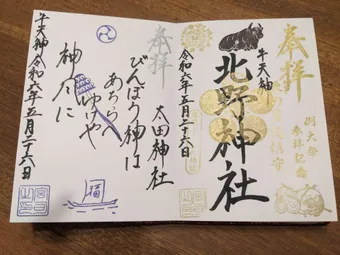 奉拝
牛天神
北野神社
令和六年五月二十六日
例大祭
参拝記念
奉拝
太田神社
びんぼう神は
あちらへ
ゆけや
神々に
牛天神
令和六年五月二十六日
福